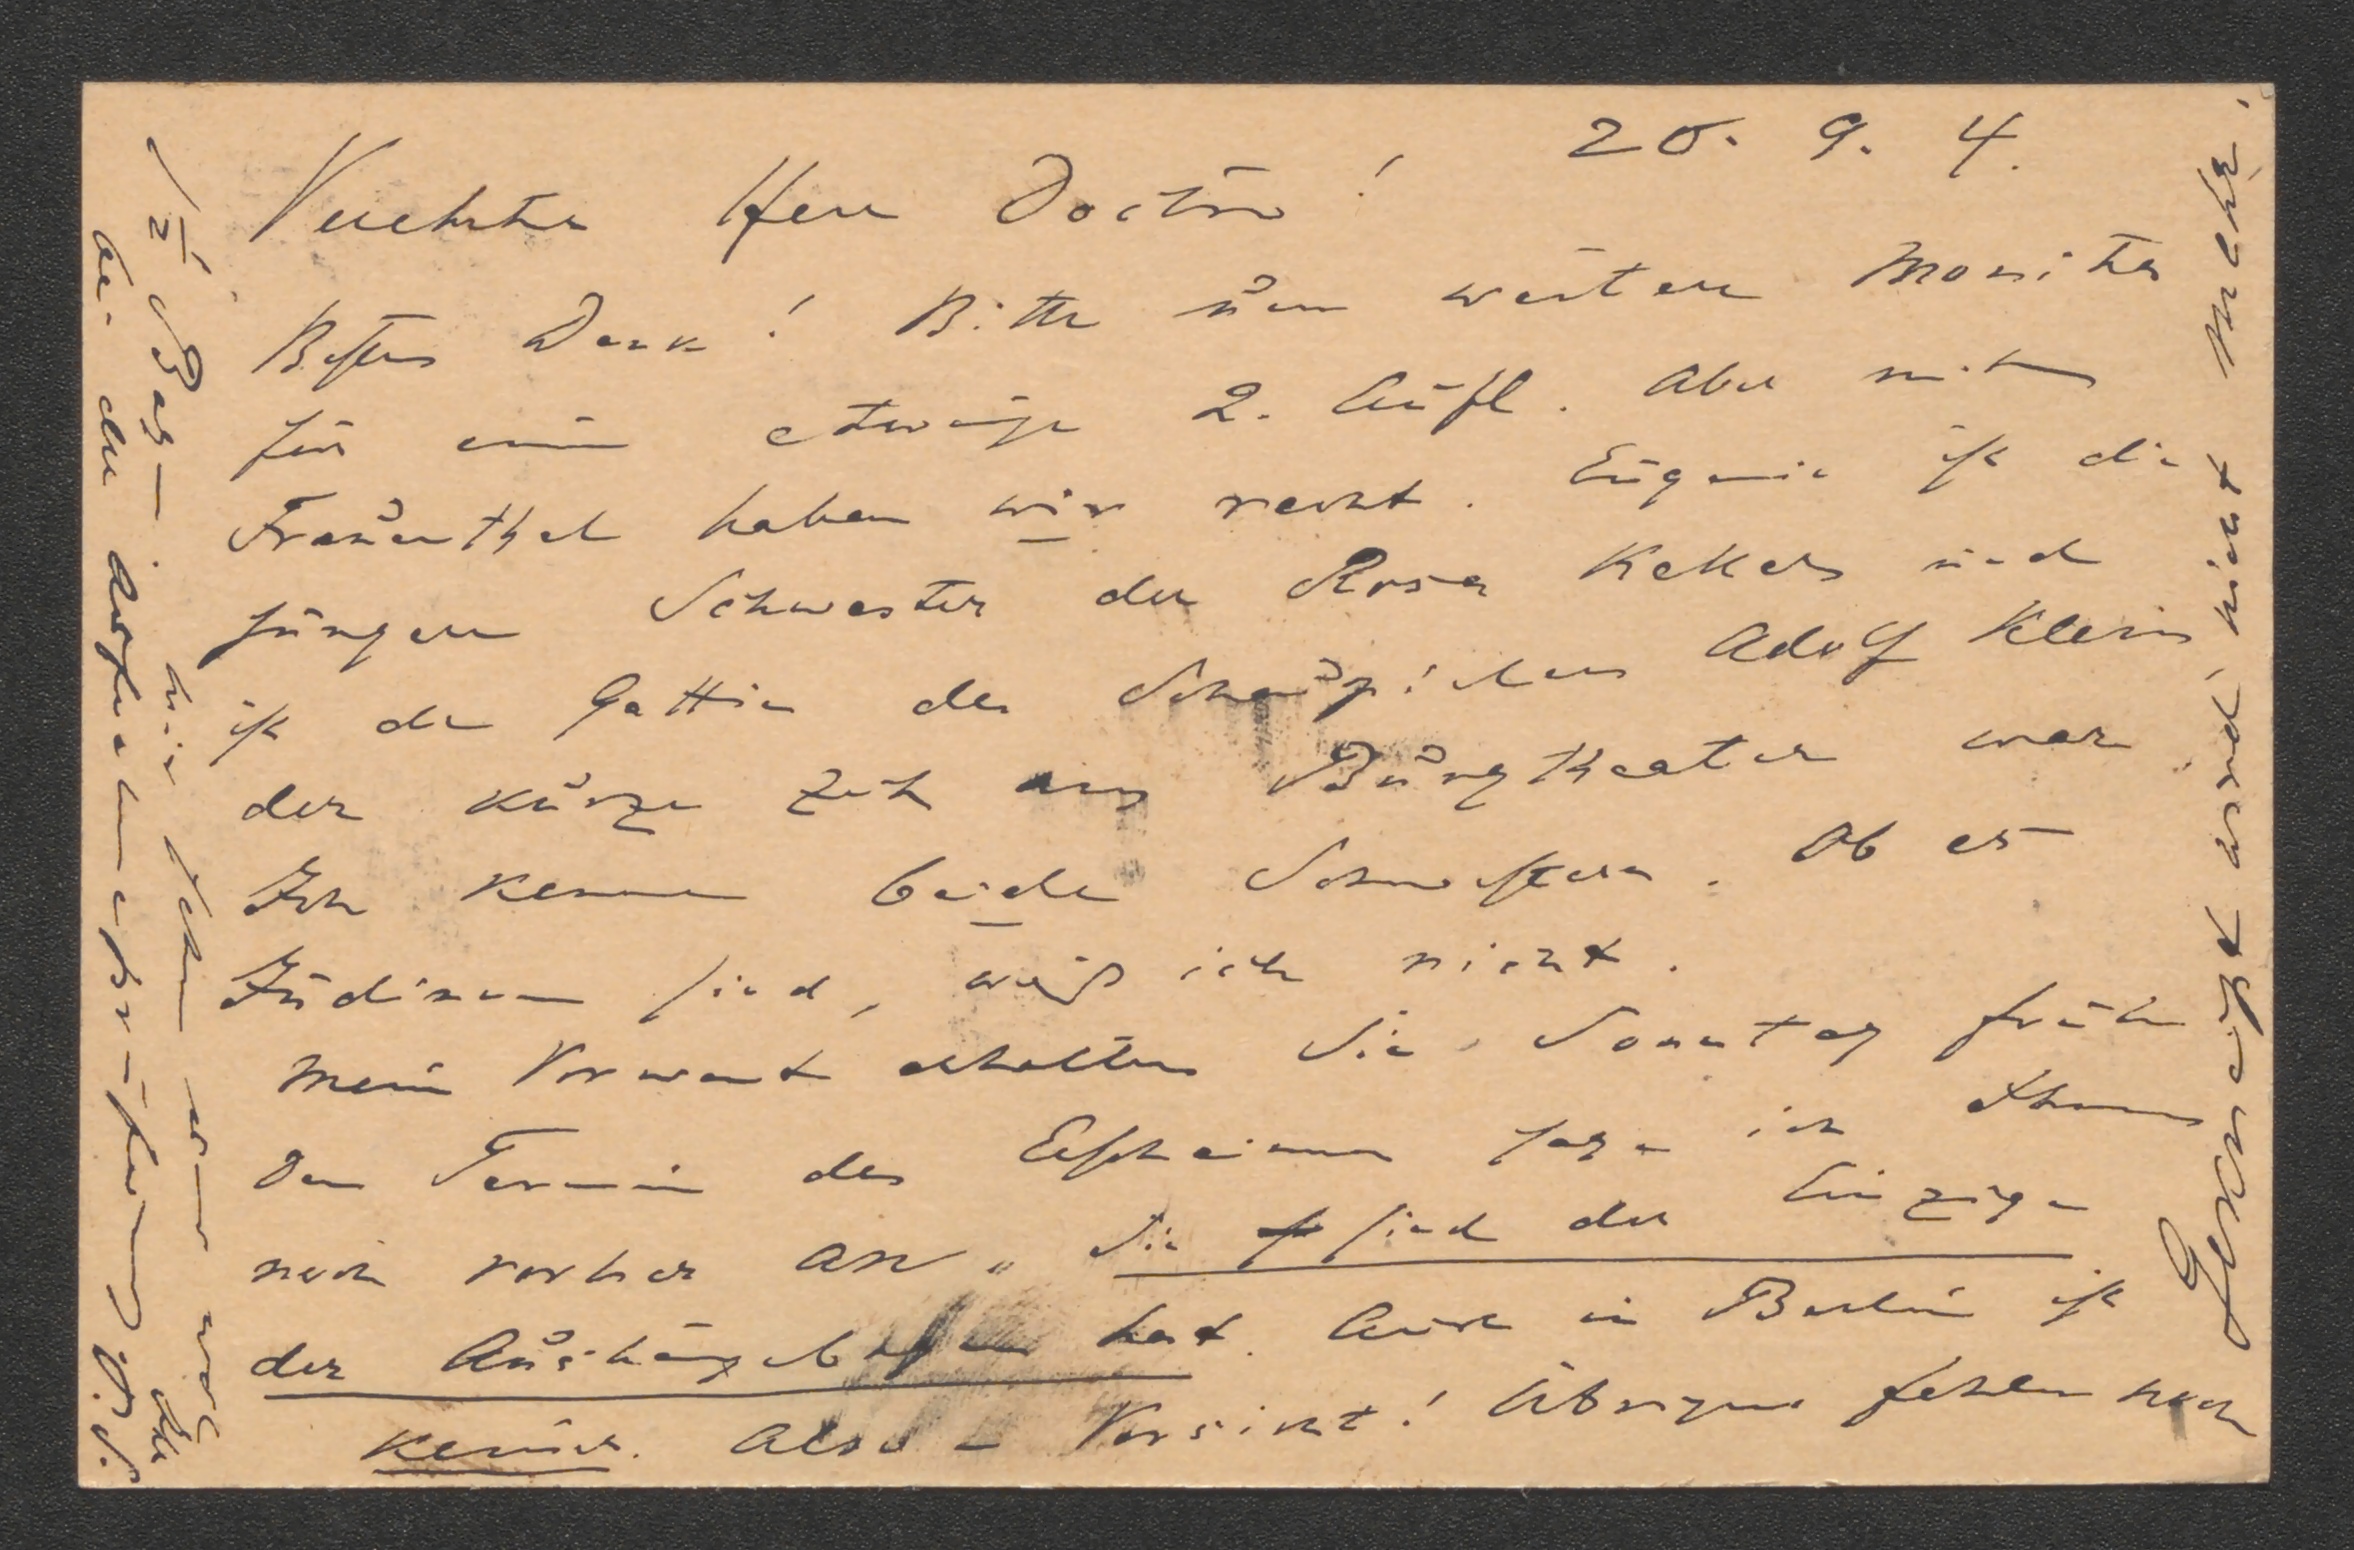 20. 9. 4.
Verehrter Herr Doctor!
Besten Dank! Bitte um weitere Monita
für eine etwaige 2. Aufl. Aber mit
Frauenthal haben wir recht. Eugenie ist die
jüngere Schwester der Rosa Keller und
ist die Gattin des Schauspielers Adolf Klein
der kurze Zeit am Burgtheater war
Ich kenne beide Schwestern. Ob es
Jüdinnen sind, weiß ich nicht.
Mein Vorwort erhalten Sie Sonntag früh
Den Termin des Erscheinens sage ich Ihnen
noch vorher an. Sie sind der Einzige
der Aushängebogen hat. Auch in Berlin ist
keiner. Also – Vorsicht! Übrigens fehlen noch
1½ Bogen. hin
bei der
J. S.
nicht mehr.